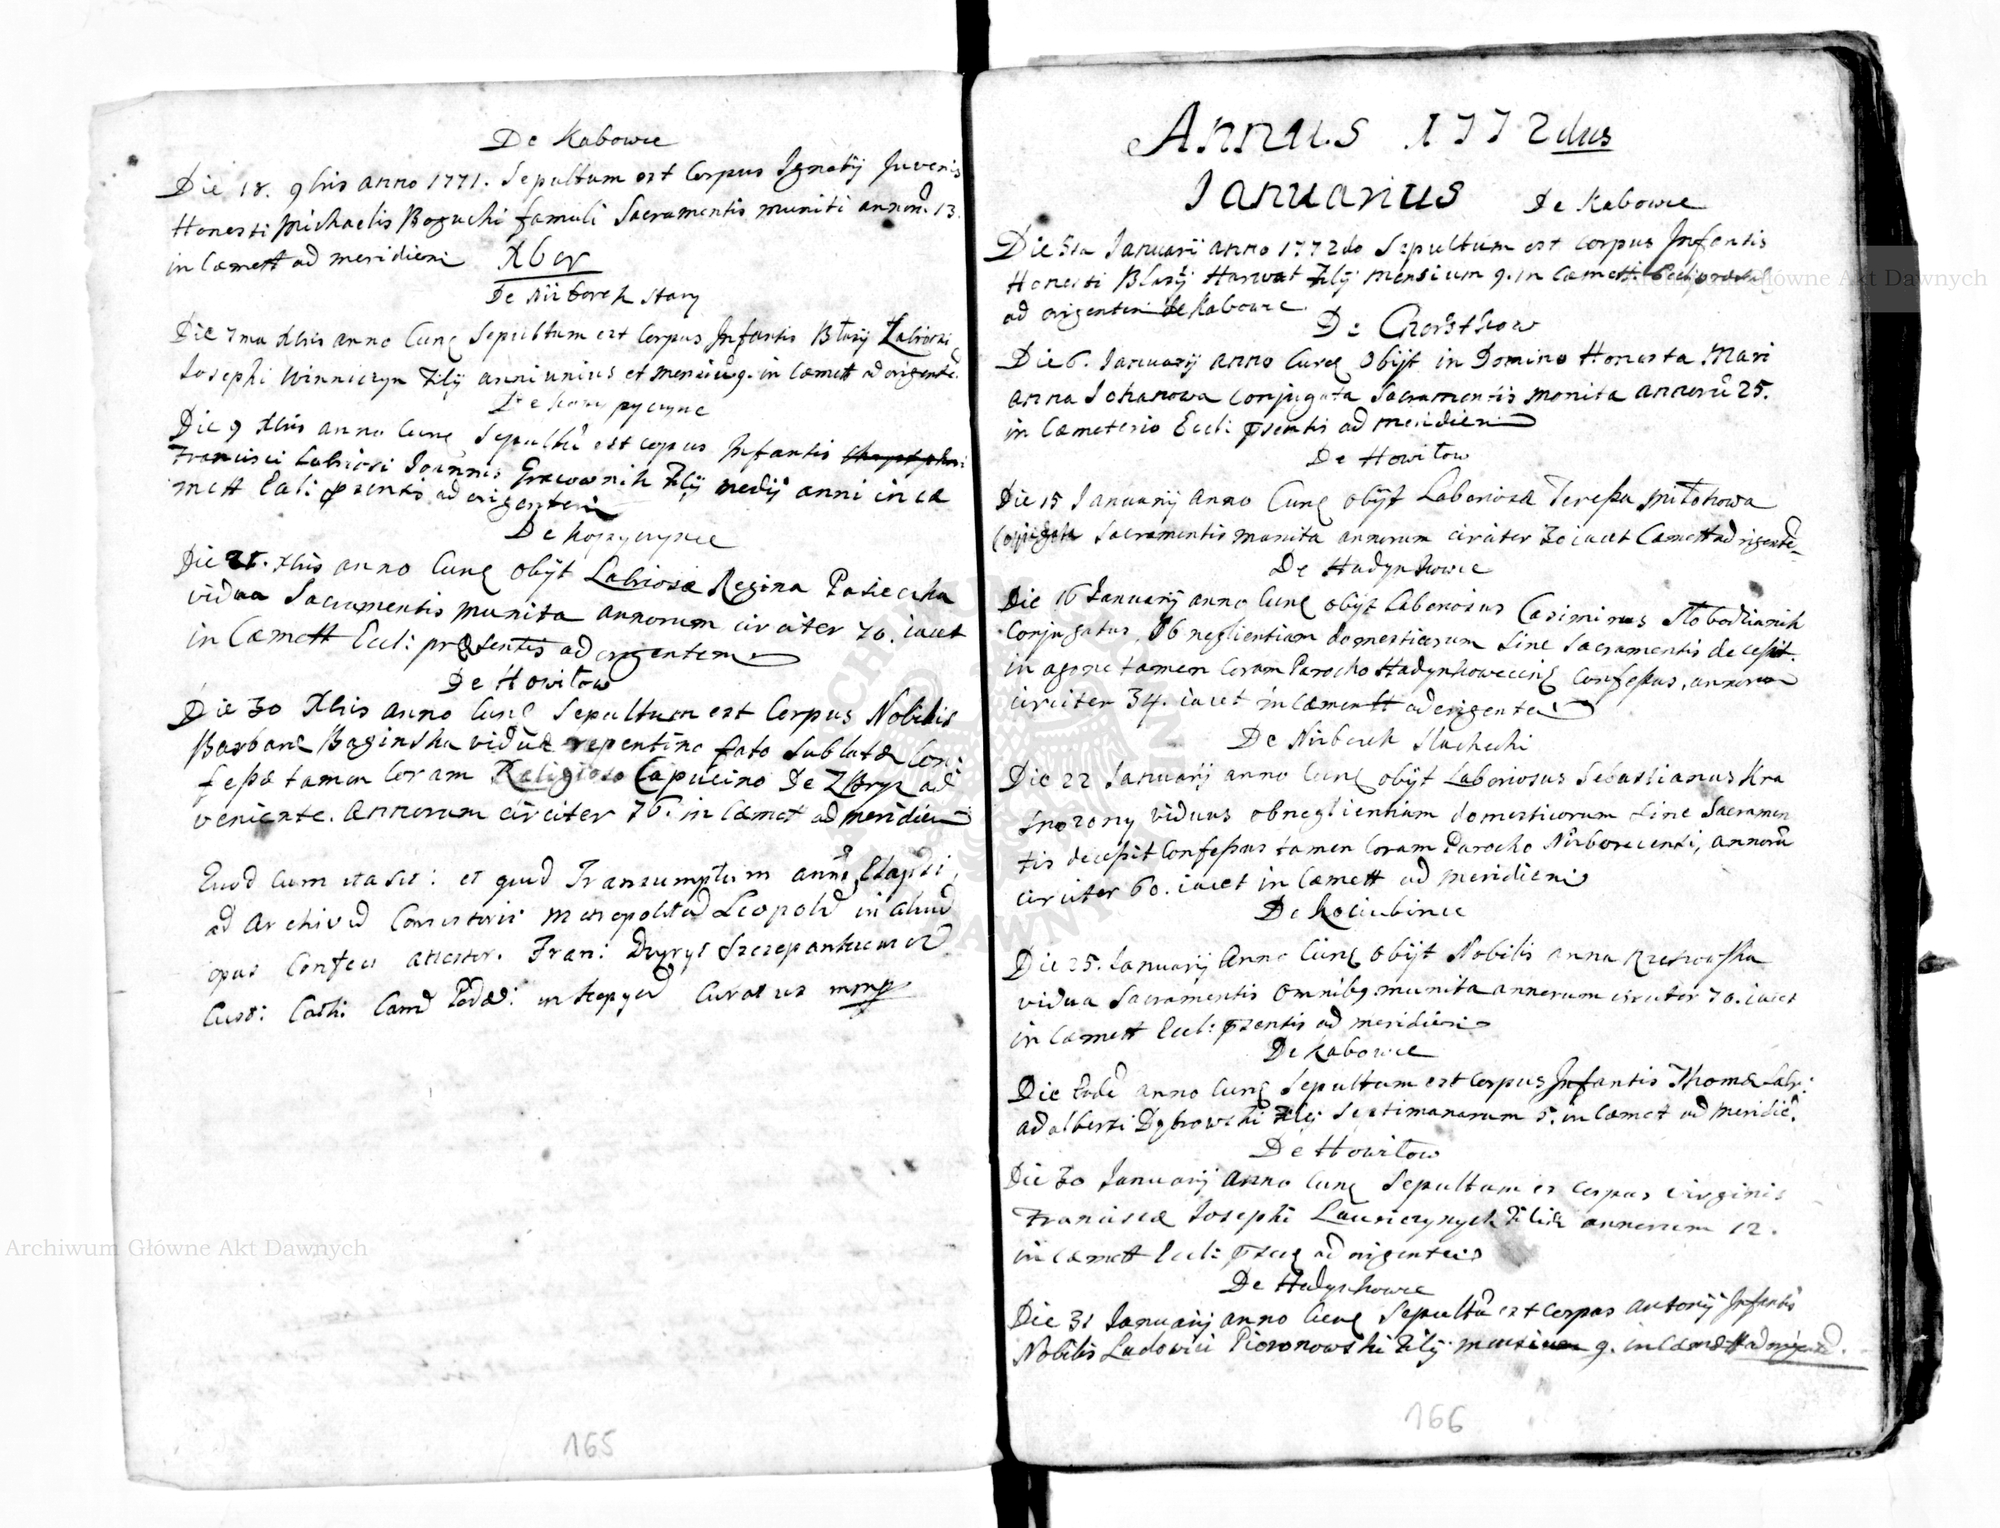 De Kabowce
Die 18. 9bris anno 1771. Sepultum est Corpus Ignatij Juvenis
Honesti Michaelis Bogucki famuli Sacramentis muniti annor. 13.
in Cæmett ad meridiem
Xber
De Niżborek Stary
Die 7ma Xbris anno Cur̨ Sepultum est Corpus Infantis Blasij Labriosi
Josephi Winniczyn Filij anni unius et mensiu 9. in Cæmett ad origente.
Die 9 Xbris anno Cur̨ Sepultu est copus Infantis
Francisci Labriosi Joannis Filij medij anni in Cæ
mett Ecli: pzentis ad origentem
De Kopyczynce
Die 21. Xbris anno Cur̨ obijt Labriosa Regina Pasieczka
vidua Sacramentis munita annorum circiter 70. iacet
in Cæmett Eccl: præsentis ad origentem
De Howiłow
Die 30 Xbris anno Cur̨ Sepultum est Corpus Nobilis
Barbaræ Baginska viduæ repentino fato sublatæ Con:
feßæ tamen Coram Religioso Capucino De Zbryz ad
veniente. annorum circiter 76. in Cæmet ad meridiem
Quod cum ita sit: et quod Transumptum anni Elapsi,
ad Archivu Consistorii Metropolita Leopold in aliud
opus Confeci attestor. Fran: Szczepankiewicz
Cust: Cath: Cam in Kopyc Curatus mmp
165
Annus 1772dus
Januarius De Kabowce
Die 5ta Januarij anno 1772do Sepultum est corpus Infantis
Honesti Blasij Harwat Filij mensium 9. in Cæmett.
ad origentem de Kabowce
De
Die 6. Januarij anno Cur̨ Obijt in Domino Honesta Mari
anna Conjugata Sacramentis monita annoru 25.
in Cæmeterio Eccli: pzentis ad meridiem
De Howiłow
Die 15 Januarij anno Cur̨ obijt Laboriosa Tereßa Miłkowa
Conjugata Sacramentis munita annorum circiter 30 iacet Cæmett ad origente
De Hadynkowce
Die 16 Januarij anno Cur̨ obijt Laboriosus Casimirus Słobodzianik
Conjugatus, Ob neglientiam domesticorum sine Sacramentis deceßit.
in agone tamen Coram Parocho Hadynkowecens̨ Confeßus, annorum
circiter 34. iacet in Cæmett ad origente
De Niżborek Szlachecki
Die 22 Januarij anno Cur̨ obijt Laboriosus Sebastianus Kra
snozony viduus ob neglientiam domesticorum sine Sacramen
tis deceßit Confeßus tamen Coram Parocho Niżborecensi, annoru
circiter 60. iacet in Cæmett ad meridiem
De Kociubince
Die 25. Januarij Anno Cur̨ Obijt Nobilis Anna
vidua Sacramentis omnibq munita annorum circiter 70. iacet
in Cæmett Eccl: pzentis ad meridiem
De Kabowce
Die Eode anno Cur̨ Sepultum est Corpus Infantis Thomæ Labr:
Adalberti Dąbrowski Filij Septimanarum 5. in Cæmet ad meridie.
De Howiłow
Die 30 Januarij Anno Cur̨ Sepultum es Corpus virginis
Franciscæ Josephi Filiæ annorum 12.
in Cæmett Eccl: ad origentem
De Hadynkowce
Die 31 Januarij anno Cur̨ Sepultu est Corpus Antonij Infantis
Nobilis Ludovici Pioronowski Filij mensium 9. in Cæmett ad origente.
166
Archiwum Główne Akt Dawnych
Archiwum Główne Akt Dawnych